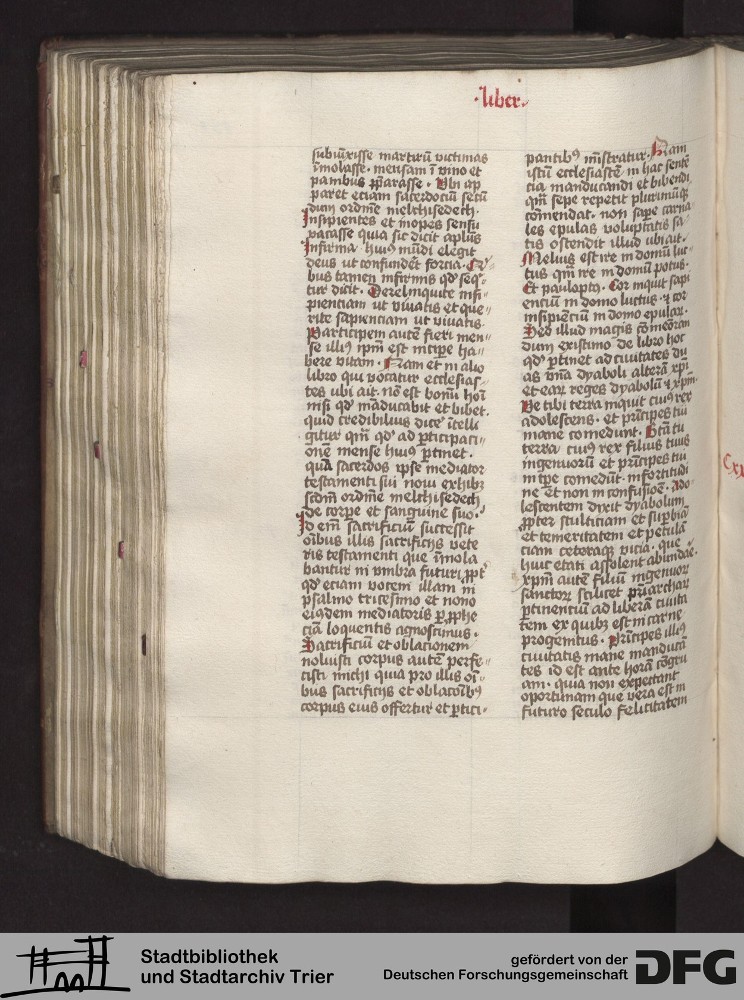 ·liber·
subiūxisse martirū victimas
īmolasse · mensam ī vino et
panibus p̄parasse · Vbi ap
paret eciam sacerdociū secū
dum ordinē melchisedech·
Insipientes et inopes sensu
vacasse quia sic dicit apl̄us
Infirma huiꝯ mūdi elegit
deus ut confundēt forcia·
bus tamen infirmis qd̓ seqͥ
tur dicit · Derelinquite insi
pienciam ut viuatis et que
rite sapienciam ut viuatis·
Participem autē fieri men
se illiꝯ ip̄m est incipe ha
bere vitam · Nam et in alio
libro qui vocatur ecclesias
tes ubi ait· nō est bonū hoī
nisi qd̓ māducabit et bibet·
quid credibilius dicē ītelli
gitur qm̄ qd̓ ad ꝑticipaci
onē mense huiꝯ ꝑtinet·
quā sacerdos ip̄se mediator
testamenti sui noui exhibꝫ
scdm̄ ordinē melchisedech
de corꝑe et sanguine suo·
Id em̄ sacrificiū successit
oībus illis sacrificijs vete
ris testamenti que īmola
bantur in vmbra futuri ꝓpt̓
qd̓ eciam vocem illam in
psalmo tricesimo et nono
eiusdem mediatoris ꝑ ꝓphe
ciā loquentis agnoscimus·
Sacrificiū et oblacionem
noluisti corpus autē perfe
cisti michi quia pro illis oī
bus sacrificijs et oblacoībꝯ
corpus eius offertur et ꝑtici
pantibꝯ mīstratur· Nam
istū ecclesiastē in hac sentē
cia manducandi et bibendi
qm̄ sepe repetit plurimūqꝫ
cōmendat· non saꝑe carna
les epulas voluptatis sa
tis ostendit illud ubi ait·
Melius est ire in domū luc
tus qm̄ ire in domū potus·
Et paulopꝯ · Cor inquit sapi
enciū in domo luctus · ⁊ cor
insipienciū in domo epularꝝ·
Sed illud magis cōmēoran
dum existimo de libro hoc
qd̓ ꝑtinet ad ciuitates du
as vnā dyaboli alterā xp̄i
et earꝝ reges dyabolū ⁊ xp̄m·
Ve tibi terra inquit cuiꝯ rex
adolescens · et prīcipes tui
mane comedunt· Bt̄a tu
terra cuiꝯ rex filius tuus
ingenuorū et prīcipes tui
in tꝑe comedūt· in fortitudi
ne et non in confusiōe· Ado
lescentem dixit dyabolum
ꝓpter stulticiam et suꝑbiā
et temeritatem et petulā
ciam ceteraqꝫ vicia · que
huic etati assolent abundar̄e·
xp̄m autē filiū ingenuorꝝ
sanctorꝝ scilicet pr̄iarcharꝝ
ꝑtinentiū ad liberā ciuita
tem ex quibꝫ est in carne
progenitus · Prīcipes illiꝯ
ciuitatis mane manducā
tes id est ante horā cōgru
am · quia non expectant
oportunam que vera est in
futuro seculo felicitatem
Stadtbibliothek
und Stadtarchiv Trier
gefördert von der
Deutschen Forschungsgemeinschaft
DFG